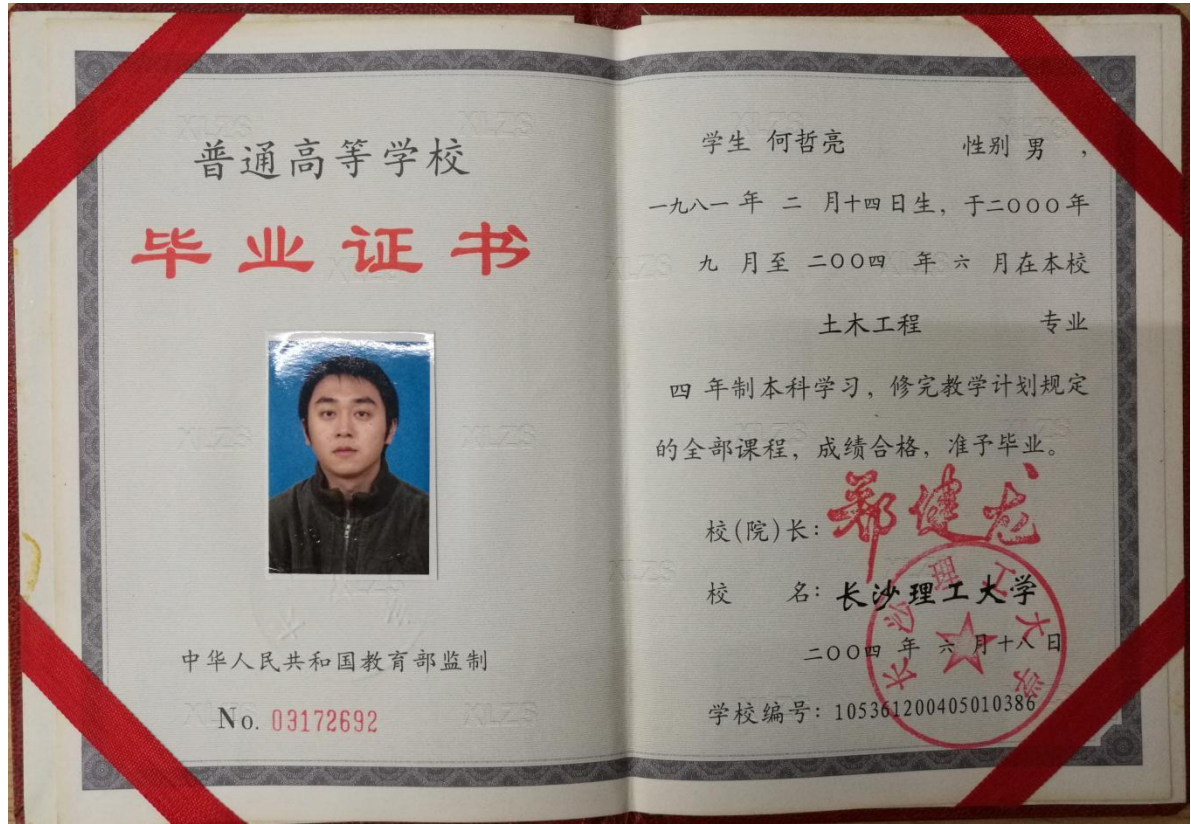 普通高等学校
毕业证书
中华人民共和国教育部监制
No. 03172692
学生 何哲亮 性别 男 ，
一九八一 年 二 月十四日生，于二〇〇〇年
九 月至 二〇〇四 年 六 月在本校
土木工程 专业
四 年制本科学习，修完教学计划规定
的全部课程，成绩合格，准予毕业。
校(院)长：郑健龙
校 名：长沙理工大学
二〇〇四 年 六 月十八日
学校编号：105361200405010386
长沙理工大学
XLZS